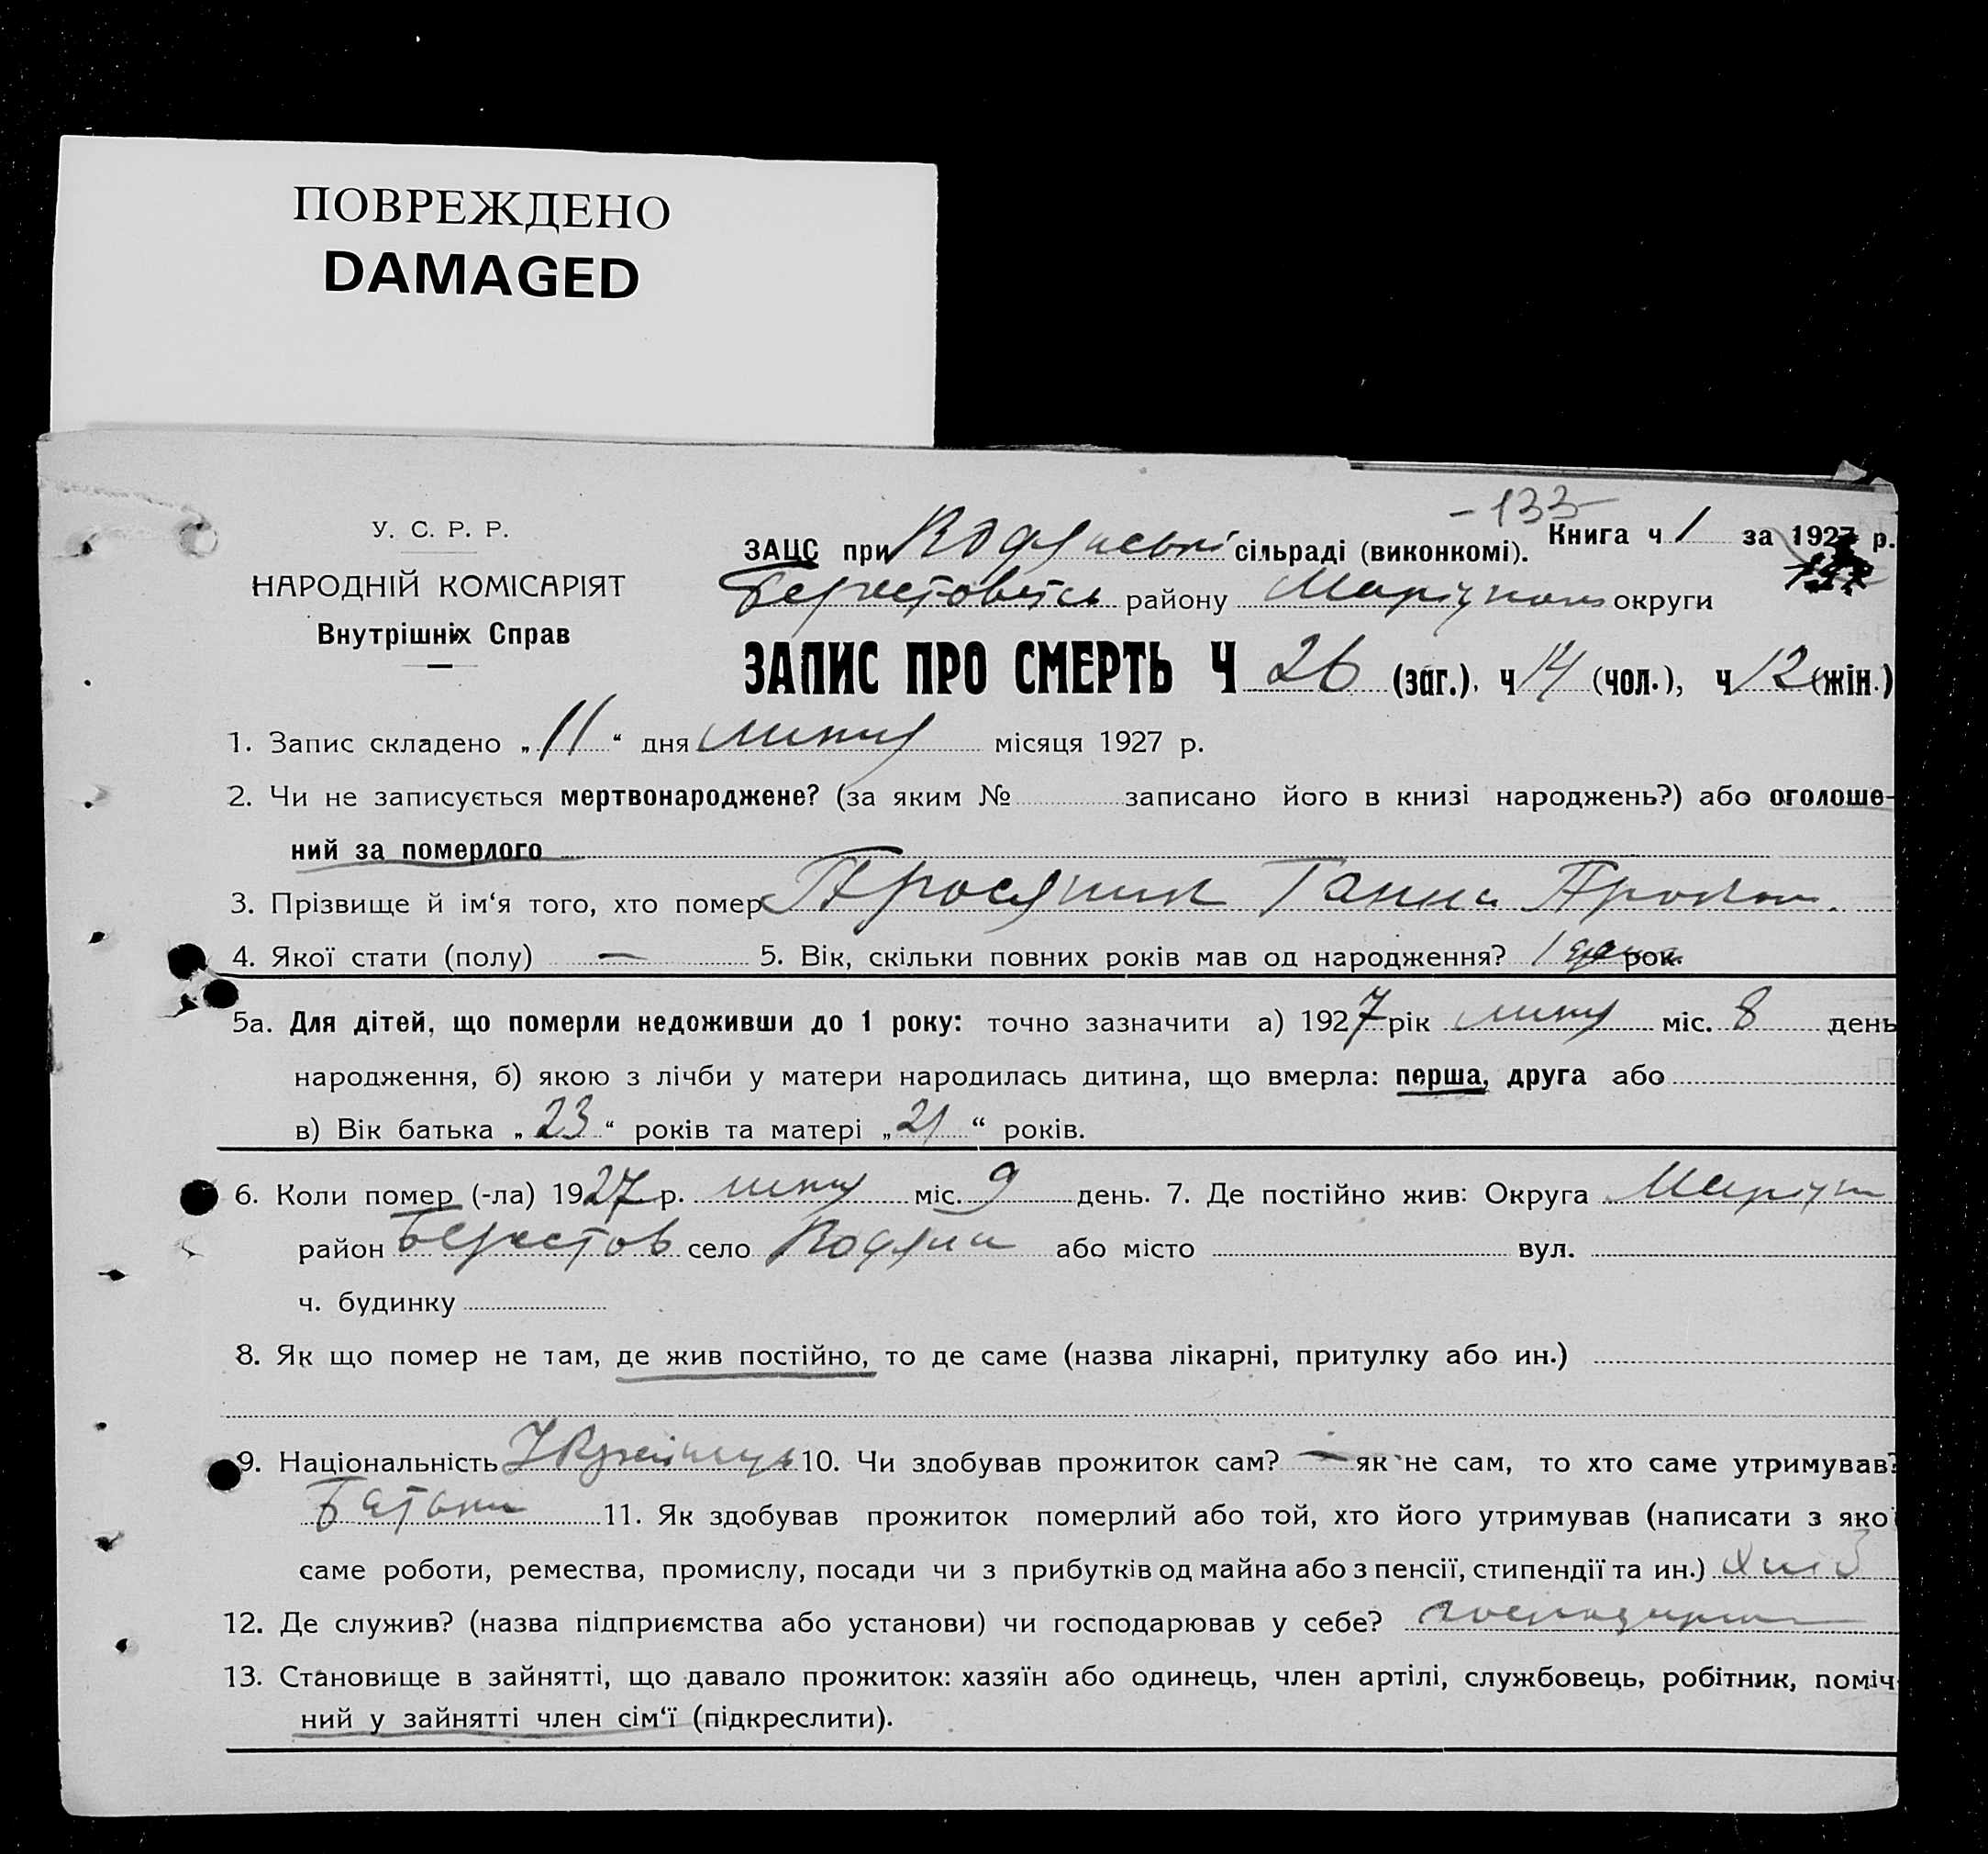 ПОВРЕЖДЕНО
DAMAGED
- 133 -
У. С. Р. Р.
НАРОДНІЙ КОМІСАРІЯТ
Внутрішніх Справ
ЗАЦС при Кодянські сільраді (виконкомі). Книга ч 1 за 1927 р.
Берестовець району Маріупол округи
ЗАПИС ПРО СМЕРТЬ Ч 26 (заг.), ч 14 (чол.), ч 12 (жін.)
1. Запис складено „ 11 “ дня липня місяця 1927 р.
2. Чи не записується мертвонароджене? (за яким № записано його в книзі народжень?) або оголоше-
ний за померлого
3. Прізвище й ім‘я того, хто помер Просяник Ганна Прокоп.
4. Якої стати (полу) — 5. Вік, скільки повних років мав од народження? 1 день рок.
5а. Для дітей, що померли недоживши до 1 року: точно зазначити а) 1927 рік липня міс. 8 день
народження, б) якою з лічби у матери народилась дитина, що вмерла: перша, друга або
в) Вік батька „ 23 “ років та матері „ 21 “ років.
6. Коли помер (-ла) 1927 р. липня міс. 9 день. 7. Де постійно жив: Округа Маріуп
район Берестов село Кодяни або місто вул.
ч. будинку
8. Як що помер не там, де жив постійно, то де саме (назва лікарні, притулку або ин.)
9. Національність Українець 10. Чи здобував прожиток сам? — як не сам, то хто саме утримував?
Батьки 11. Як здобував прожиток померлий або той, хто його утримував (написати з якої
саме роботи, ремества, промислу, посади чи з прибутків од майна або з пенсії, стипендії та ин.)
12. Де служив? (назва підприємства або установи) чи господарював у себе?
13. Становище в зайнятті, що давало прожиток: хазяїн або одинець, член артілі, службовець, робітник, поміч-
ний у зайнятті член сім‘ї (підкреслити).